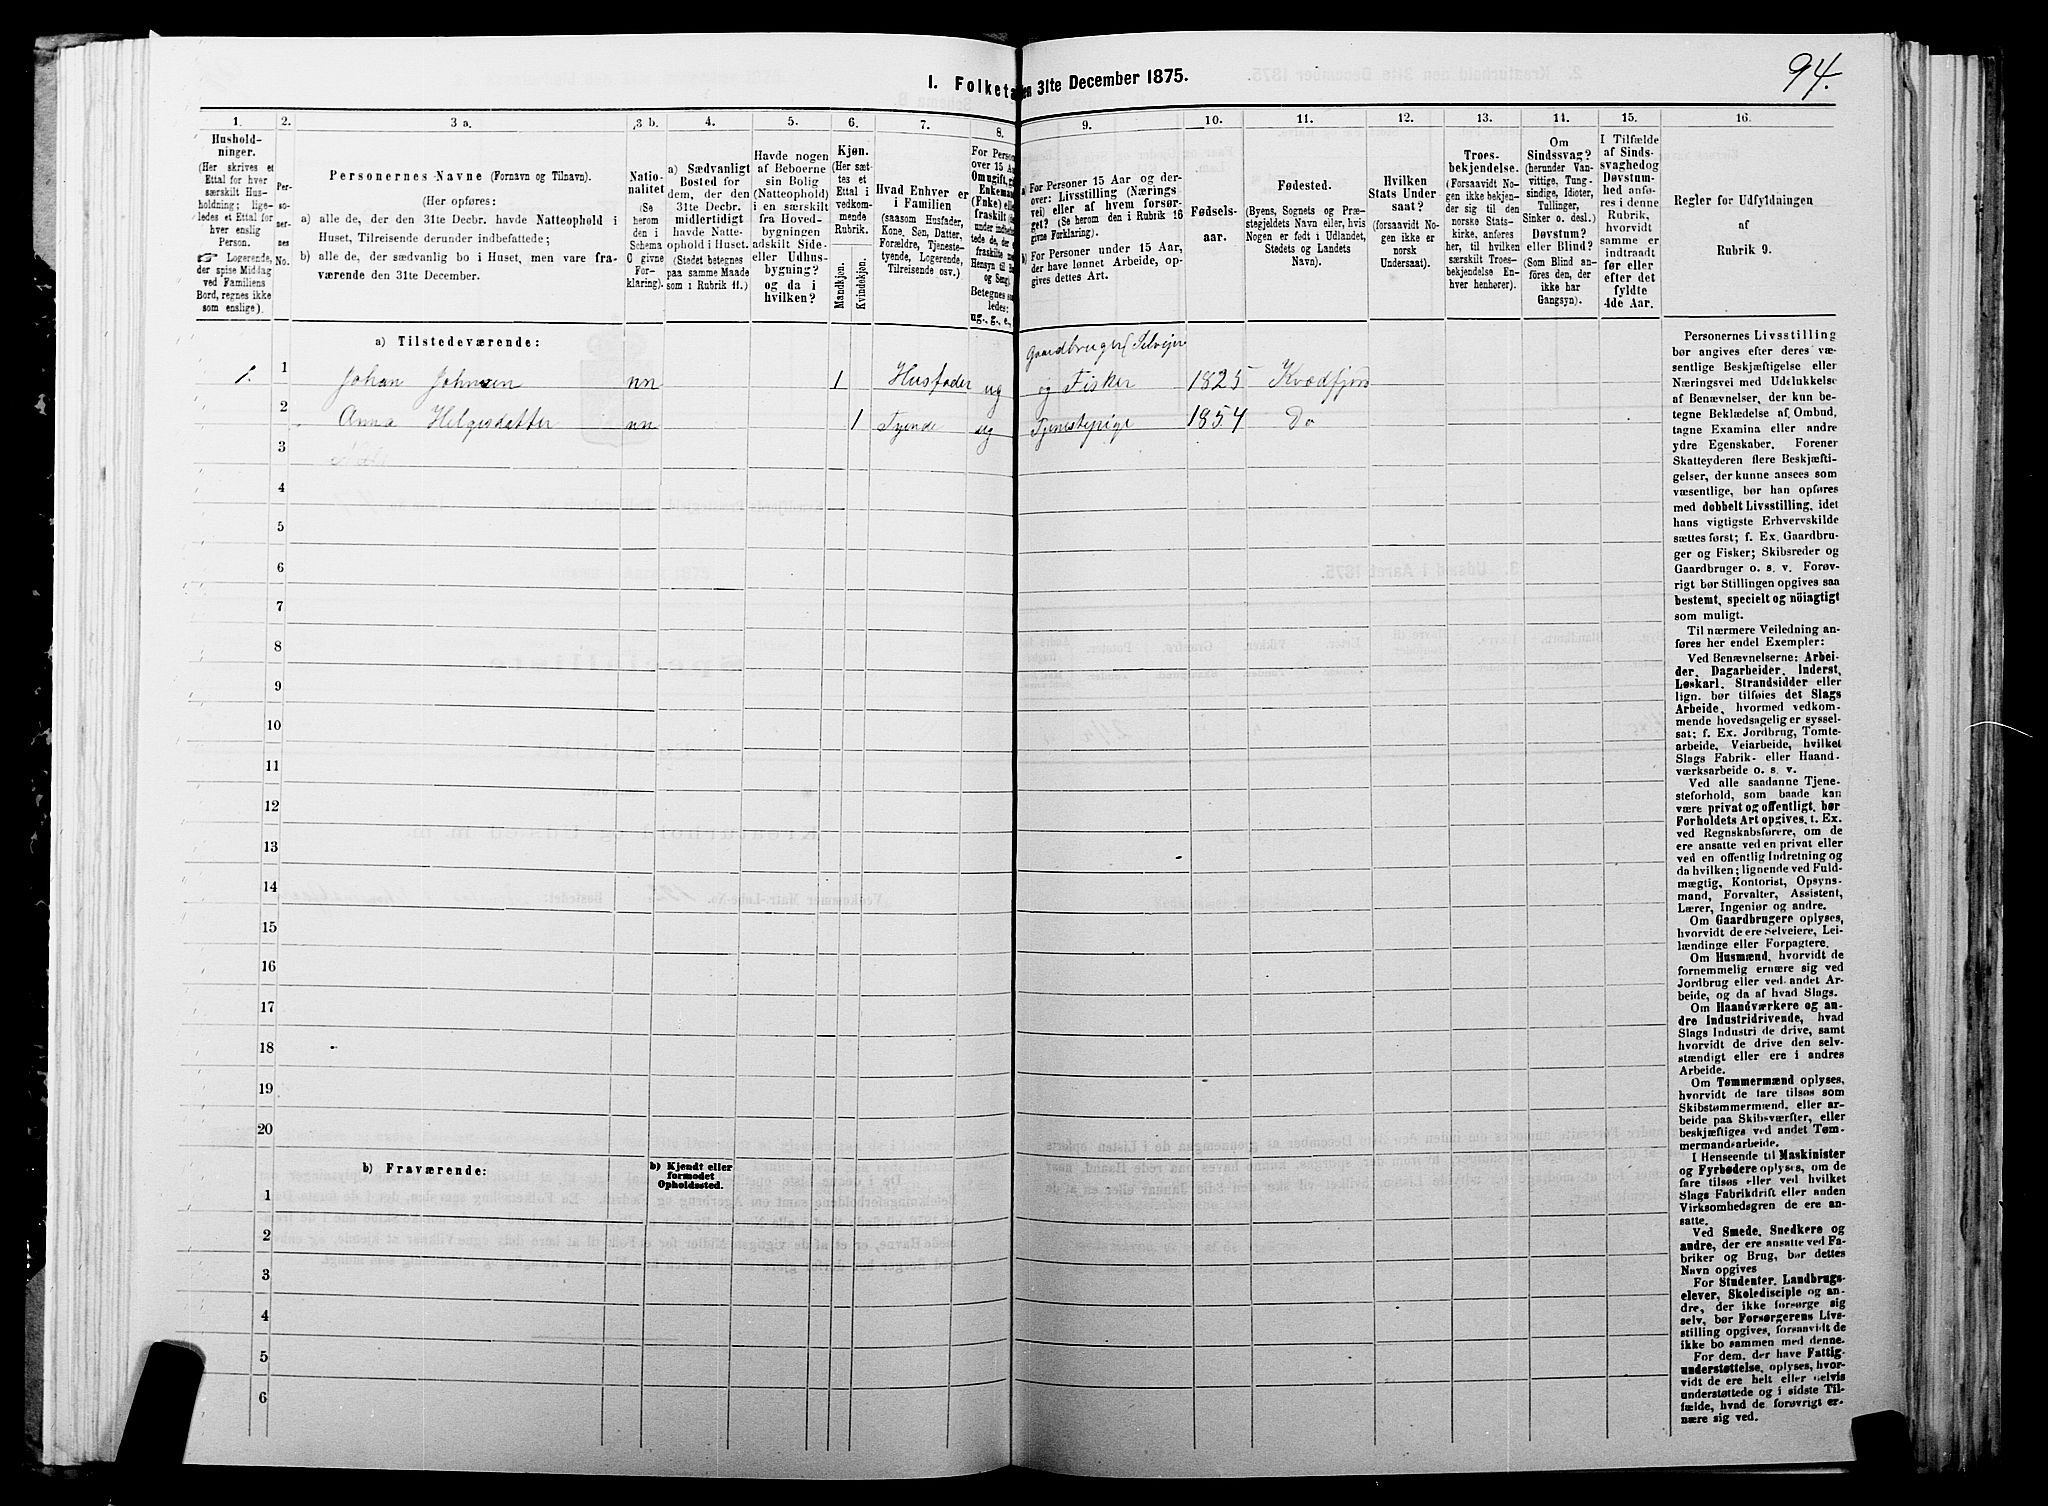 94.
I. Folketa en 31te December 1875.
1.
2.
3 a.
3 b.
4.
5.
6.
7.
8.
9.
10.
11.
12.
13.
14.
15.
16.
Hushold-
ninger.
(Her skrives et
Ettal for hver
særskilt Hus-
holdning; lige-
ledes et Ettal for
hver enslig
Person.
Logerende,
der spise Middag
ved Familiens
Bord, regnes ikke
som enslige).
Per-
so-
ner-
nes
No.
Personernes Navne (Fornavn og Tilnavn).
(Her opføres:
a) alle de, der den 31te Decbr. havde Natteophold i
Huset, Tilreisende derunder indbefattede;
b) alle de, der sædvanlig bo i Huset, men vare fra-
værende den 31te December.
Natio-
nalitet
(Se
herom
den i
Schema
C givne
For-
klaring).
a) Sædvanligt
Bosted for
dem, der den
31te Decbr.
midlertidigt
havde Natte-
ophold i Huset.
(Stedet betegnes
paa samme Maade
som i Rubrik 11.)
Havde nogen
af Beboerne
sin Bolig
(Natteophold)
i en særskilt
fra Hoved-
bygningen
adskilt Side-
eller Udhus-
bygning?
og da i
hvilken?
Kjøn.
(Her sæt-
tes et
Ettal i
vedkom-
mende
Rubrik.
Mandkjøn.
Kvindekjøn.
Hvad Enhver er
i Familien
(saasom Husfader,
Kone, Søn, Datter,
Forældre, Tjeneste-
tyende, Logerende,
Tilreisende osv.)
For Person
over 15 Aa
Om ugift, gi
Enkema
(Fnke) elle
fraskilt
under indbe
tede de, der
fraskilte
Hensyn til B
og Seng)
Betegnes saa-
ledes:
ug., g., e.,
a) For Personer 15 Aar og der-
over: Livsstilling (Nærings-
vei) eller af hvem forsør-
get? (Se herom den i Rubrik 16
givne Forklaring).
b) For Personer under 15 Aar,
der have lønnet Arbeide, op-
gives dettes Art.
Fødsels-
aar.
Fødested.
(Byens, Sognets og Præ-
stegjeldets Navn eller, hvis
Nogen er født i Udlandet,
Stedets og Landets
Navn).
Hvilken
Stats Under-
saat?
(forsaavidt No-
gen ikke er
norsk
Undersaat).
Troes-
bekjendelse.
(Forsaavidt No-
gen ikke bekjen-
der sig til den
norske Stats-
kirke, anføres
her, til hvilken
særskilt Troes-
bekjendelse En-
hver henhører).
Om
Sindssvag?
(herunder Van-
vittige, Tung-
sindige, Idioter,
Tullinger,
Sinker o. desl.)
Døvstum?
eller Blind?
(Som Blind an-
føres den, der
ikke har
Gangsyn).
I Tilfælde
af Sinds-
svaghed og
Døvstum-
hed anfø-
res i denne
Rubrik,
hvorvidt
samme er
indtraadt
før eller
efter det
fyldte
4de Aar.
Regler for Udfyldningen
af
Rubrik 9.
a) Tilstedeværende:
Gaardbruger Selveier
1. 1 Johan Johnsen nn 1 Husfader ug og Fisker 1825 Kvædfjord
2 Anna Helgesdatter nn 1 Tyende ug Tjenestepige 1854 Do
3
4
5
6
7
8
9
10
11
12
13
14
15
16
17
18
19
20
b) Fraværende:
b) Kjendt eller
formodet
Opholdssted.
1
2
3
4
5
6
Personernes Livsstilling
bør angives efter deres væ-
sentlige Beskjæftigelse eller
Næringsvei med Udelukkelse
af Benævnelser, der kun be-
tegne Beklædelse af Ombud,
tagne Examina eller andre
ydre Egenskaber. Forener
Skatteyderen flere Beskjæfti-
gelser, der kunne ansees som
væsentlige, bør han opføres
med dobbelt Livsstilling, idet
hans vigtigste Erhvervskilde
sættes først; f. Ex. Gaardbru-
ger og Fisker; Skibsreder og
Gaardbruger o. s. v. Forøv-
rigt bør Stillingen opgives saa
bestemt, specielt og nöiagtigt
som muligt.
Til nærmere Veiledning an-
føres her endel Exempler:
Ved Benævnelserne: Arbei-
der, Dagarbeider, Inderst,
Løskarl, Strandsidder eller
lign. bør tilføies det Slags
Arbeide, hvormed vedkom-
mende hovedsagelig er syssel-
sat; f. Ex. Jordbrug, Tomte-
arbeide, Veiarbeide, hvilket
Slags Fabrik- eller Haand-
værksarbeide o. s. v.
Ved alle saadanne Tjene-
steforhold, som baade kan
være privat og offentligt, bør
Forholdets Art opgives, f. Ex.
ved Regnskabsførere, om de
ere ansatte ved en privat eller
ved en offentlig Indretning og
da hvilken; lignende ved Fuld-
mægtig, Kontorist, Opsyns-
mand, Forvalter, Assistent,
Lærer, Ingeniør og andre.
Om Gaardbrugere oplyses,
hvorvidt de ere Selveiere, Lei-
lændinge eller Forpagtere.
Om Husmænd, hvorvidt de
fornemmelig ernære sig ved
Jordbrug eller ved andet Ar-
beide, og da af hvad Slags.
Om Haandværkere og an-
dre Industridrivende, hvad
Slags Industri de drive, samt
hvorvidt de drive den selv-
stændigt eller ere i andres
Arbeide.
Om Tømmermænd oplyses,
hvorvidt de fare tilsøs som
Skibstømmermænd, eller ar-
beide paa Skibsværfter, eller
beskjæftiges ved andet Tøm-
mermandsarbeide.
I Henseende til Maskinister
og Fyrbødere oplyses, om de
fare tilsøs eller ved hvilket
Slags Fabrikdrift eller anden
Virksomhedsgren de ere an-
satte.
Ved Smede, Snedkere og
andre, der ere ansatte ved Fa-
briker og Brug, bør dettes
Navn opgives
For Studenter, Landbrugs-
elever, Skoledisciple og an-
dre, der ikke forsørge sig
selv, bør Forsørgerens Livs-
stilling opgives, forsaavidt de
ikke bo sammen med denne.
For dem, der have Fattig-
understøttelse, oplyses, hvor-
vidt de ere helt eller delvis
understøttede og i sidste Til-
fælde, hvad de forøvrigt er-
nære sig ved.